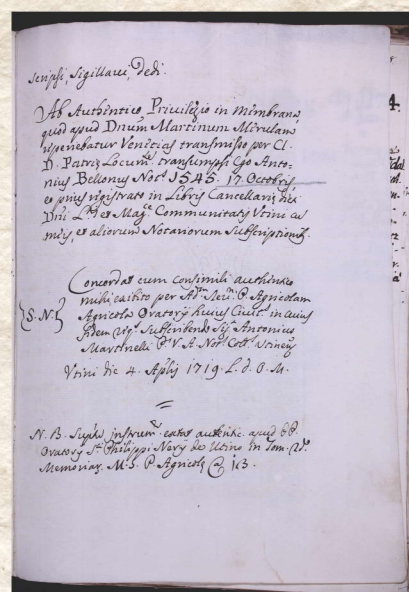 scripsi, Sigillavi, Dedi.
Ab Authentico Privilegio in membrana,
quod apud Dnum Martinum
Venetias transmisso per Cl.
D. Patriæ Locum. transumpsi Ego Anto=
nius Bellonus Not. 1545. 17 Octobris,
eo prius registrato in Libris Cancellariæ
et Mag. Communitatis Utini cu
et aliorum Notariorum Subscriptionib.
Concordat cum consimili authentico
mihi exibito per P. Agricolam
{S.N.} Agricola Oratorij huius Civit. in cuius
fidem Subscribendo Antonius
Martinelli V. A. Not. Coll. Utinen
Utini die 4. Aplis 1719. L. d. O. M.
=
N. B. Supdu instrum. extat authentic. apud PP.
Oratorij Sti. Philippi Nerij de Utino in Tom.
Memoriar. M. S. P. Agricolæ 163.
4.